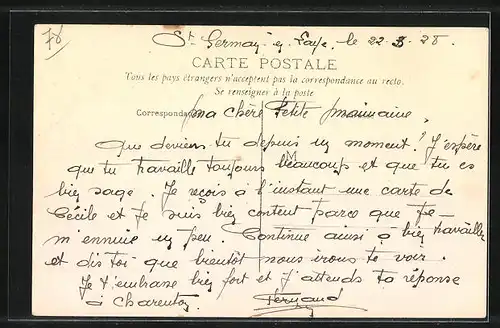 78
St Germain-en-Laye, le 22-3-28.
CARTE POSTALE
Tous les pays étrangers n'acceptent pas la correspondance au recto.
Se renseigner à la poste
Correspondance
Ma chère Petite
Que deviens-tu depuis un moment? J'espère
que tu travaille toujours beaucoup et que tu es
bien sage. Je reçois à l'instant une carte de
Cécile et Je suis bien content parce que Je
m'ennuie un peu. Continue ainsi à bien travailler
et dis toi que bientôt nous irons te voir.
Je t'embrasse bien fort et J'attends ta réponse
à Charenton. Fernand